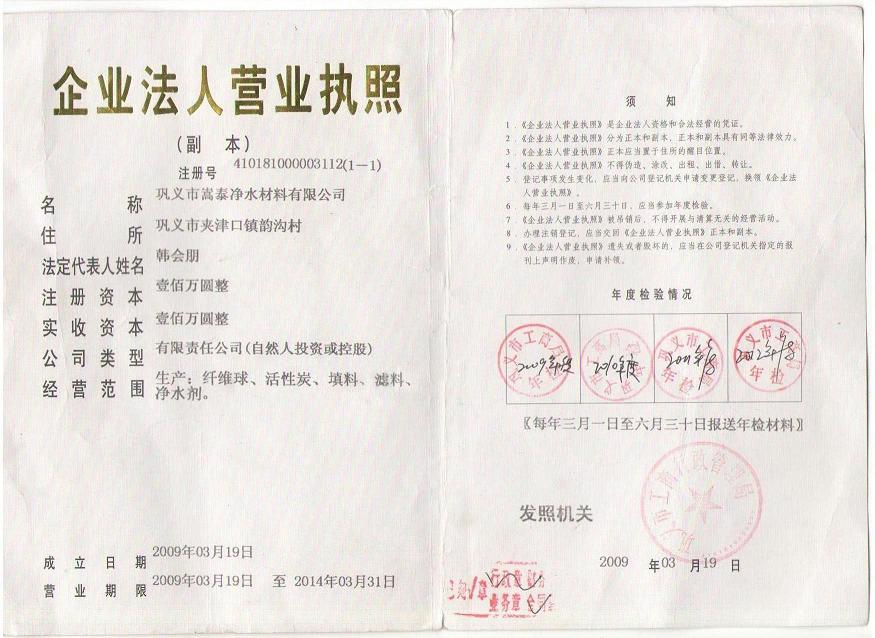 企业法人营业执照
（副 本）
注册号 410181000003112(1－1)
名 称 巩义市嵩泰净水材料有限公司
住 所 巩义市夹津口镇韵沟村
法定代表人姓名 韩会朋
注册资本 壹佰万圆整
实收资本 壹佰万圆整
公司类型 有限责任公司(自然人投资或控股)
经营范围 生产：纤维球、活性炭、填料、滤料、
净水剂。
成立日期 2009年03月19日
营业期限 2009年03月19日 至 2014年03月31日
须 知
1．《企业法人营业执照》是企业法人资格和合法经营的凭证。
2．《企业法人营业执照》分为正本和副本，正本和副本具有同等法律效力。
3．《企业法人营业执照》正本应当置于住所的醒目位置。
4．《企业法人营业执照》不得伪造、涂改、出租、出借、转让。
5．登记事项发生变化，应当向公司登记机关申请变更登记，换领《企业法
人营业执照》。
6．每年三月一日至六月三十日，应当参加年度检验。
7．《企业法人营业执照》被吊销后，不得开展与清算无关的经营活动。
8．办理注销登记，应当交回《企业法人营业执照》正本和副本。
9．《企业法人营业执照》遗失或者毁坏的，应当在公司登记机关指定的报
刊上声明作废，申请补领。
年度检验情况
2009年度
2010年度
2011年度
2012年度
年检
〖每年三月一日至六月三十日报送年检材料〗
巩义市工商行政管理局
发照机关
2009 年 03 月 19 日
业务章